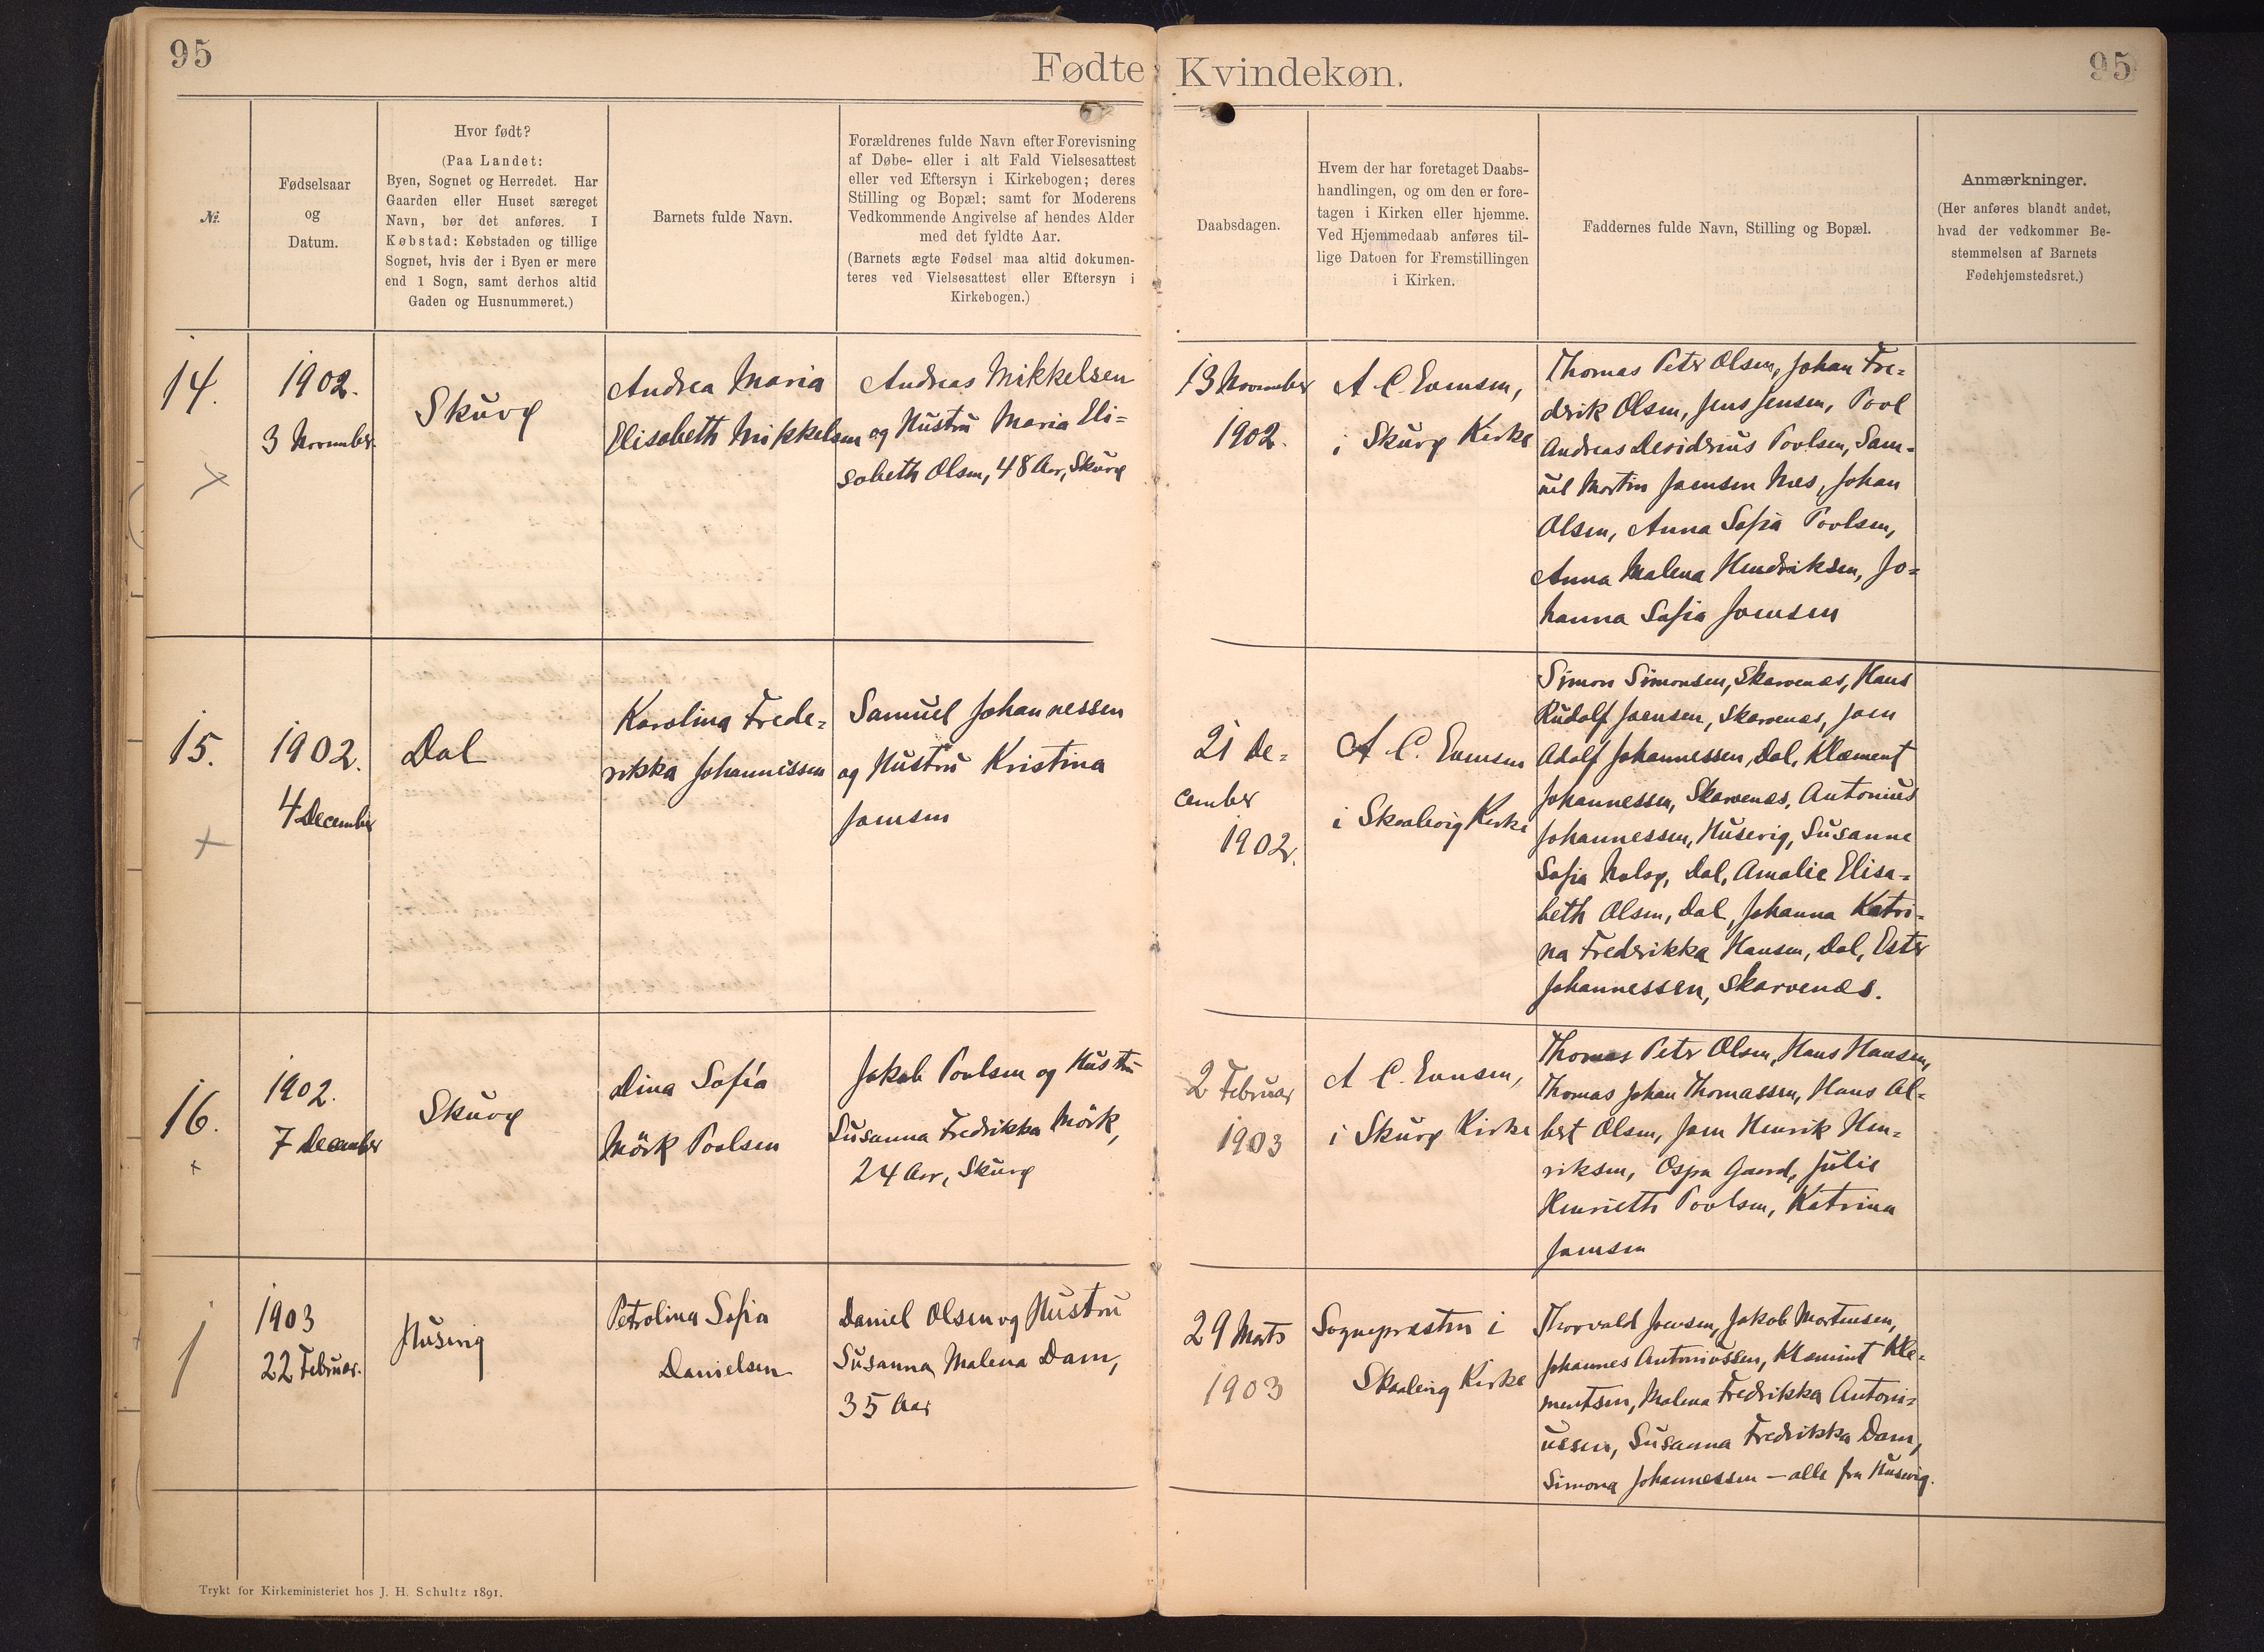 95
Fødte Kvindekøn.
95
№.
Fødselsaar
og
Datum.
Hvor født?
(Paa Landet:
Byen, Sognet og Herredet. Har
Gaarden eller Huset særeget
Navn, bør det anføres. I
Købstad: Købstaden og tillige
Sognet, hvis der i Byen er mere
end 1 Sogn, samt derhos altid
Gaden og Husnummeret.)
Barnets fulde Navn.
Forældrenes fulde Navn efter Forevisning
af Døbe- eller i alt Fald Vielsesattest
eller ved Eftersyn i Kirkebogen; deres
Stilling og Bopæl; samt for Moderens
Vedkommende Angivelse af hendes Alder
med det fyldte Aar.
(Barnets ægte Fødsel maa altid dokumen-
teres ved Vielsesattest eller Eftersyn i
Kirkebogen.)
Daabsdagen.
Hvem der har foretaget Daabs-
handlingen, og om den er fore-
tagen i Kirken eller hjemme.
Ved Hjemmedaab anføres til-
lige Datoen for Fremstillingen
i Kirken.
Faddernes fulde Navn, Stilling og Bopæl.
Anmærkninger.
(Her anføres blandt andet,
hvad der vedkommer Be-
stemmelsen af Barnets
Fødehjemstedsret.)
14.
1902.
3 November.
Skuvø
Andrea Maria
Elisabeth Mikkelsen
Andreas Mikkelsen
og Hustru Maria Eli=
sabeth Olsen, 48 Aar, Skuvø
13 November
1902.
A C. Evensen,
i Skuvø Kirke
Thomas Peter Olsen, Johan Fre=
derik Olsen, Jens Jensen, Poul
Andreas Desiderius Poulsen, Sam=
uel Martin Joensen Næs, Johan
Olsen, Anna Sofia Poulsen,
Anna Malena Hendriksen, Jo=
hanna Sofia Joensen
15.
1902.
4 December
Dal
Karolina Frede=
rikka Johannessen
Samuel Johannessen
og Hustru Kristina
Joensen
21 De=
cember
1902.
A C. Evensen
i Skaalevig Kirke
Simon Simonsen, Skarvenæs, Hans
Rudolf Joensen, Skarvenæs, Joen
Adolf Johannessen, Dal, Klæment
Johannessen, Skarvenæs, Antonius
Johannessen, Husevig, Susanne
Sofia Nolsø, Dal, Amalie Elisa=
beth Olsen, Dal, Johanna Katri=
na Frederikka Hansen, Dal, Ester
Johannessen, Skarvenæs.
16.
1902.
7 December
Skuvø
Dina Sofia
Mörk Poulsen
Jakob Poulsen og Hustru
Susanna Fredrikka Mörk,
24 Aar, Skuvø
2 Februar
1903
A C. Evensen,
i Skuvø Kirke
Thomas Peter Olsen, Hans Hansen,
Thomas Johan Thomassen, Hans Al=
bert Olsen, Joen Henrik Hen=
riksen, Gaard, Julie
Henriette Poulsen, Katrina
Joensen
1
1903
22 Februar.
Husevig
Petrolina Sofia
Danielsen
Daniel Olsen og Hustru
Susanna Malena Dam,
35 Aar
29 Marts
1903
Sognepræsten i
Skaalevig Kirke
Thorvald Joensen, Jakob Mortensen,
Johannes Antoniussen, Klæmint Kle=
mentsen, Malena Fredrikka Antoni=
ussen, Susanna Fredrikka Dam,
Simona Johannessen — alle fra Husevig.
Trykt for Kirkeministeriet hos J. H. Schultz 1891.